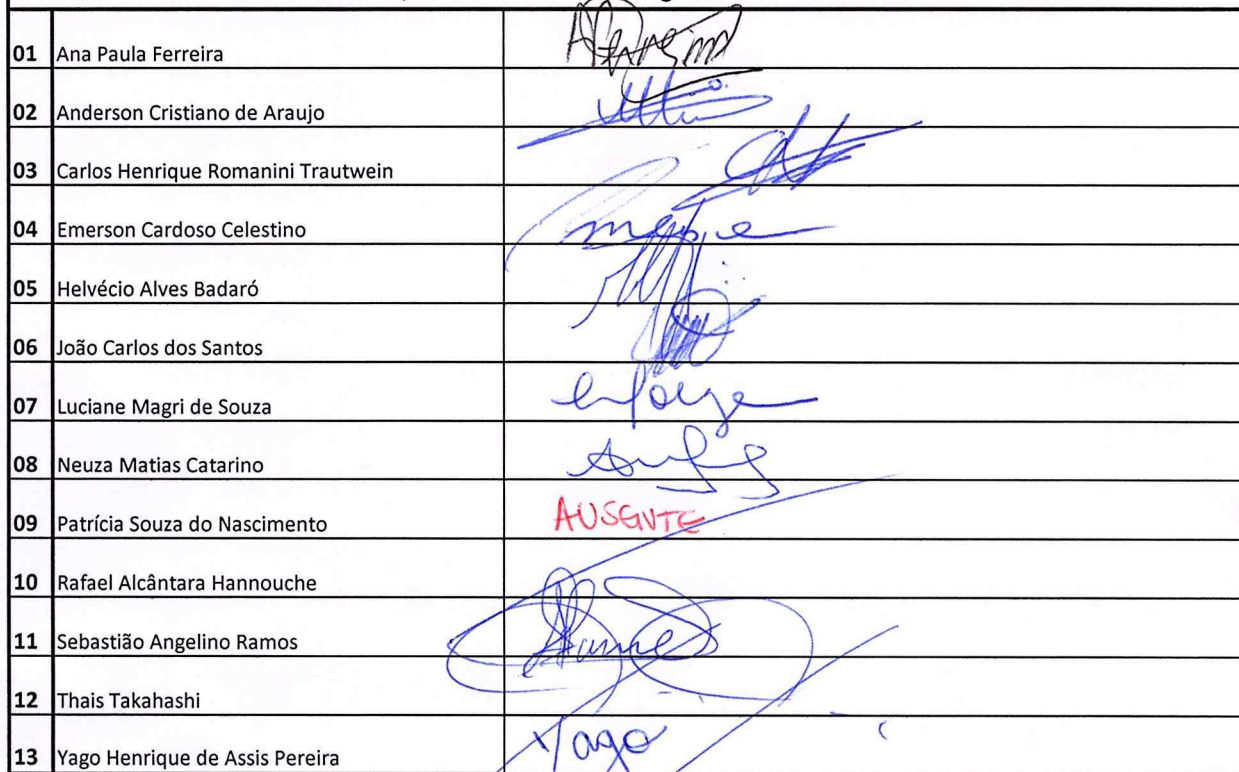 01 Ana Paula Ferreira
02 Anderson Cristiano de Araujo
03 Carlos Henrique Romanini Trautwein
04 Emerson Cardoso Celestino
05 Helvécio Alves Badaró
06 João Carlos dos Santos
07 Luciane Magri de Souza
08 Neuza Matias Catarino
09 Patrícia Souza do Nascimento AUSENTE
10 Rafael Alcântara Hannouche
11 Sebastião Angelino Ramos
12 Thais Takahashi
13 Yago Henrique de Assis Pereira Yago